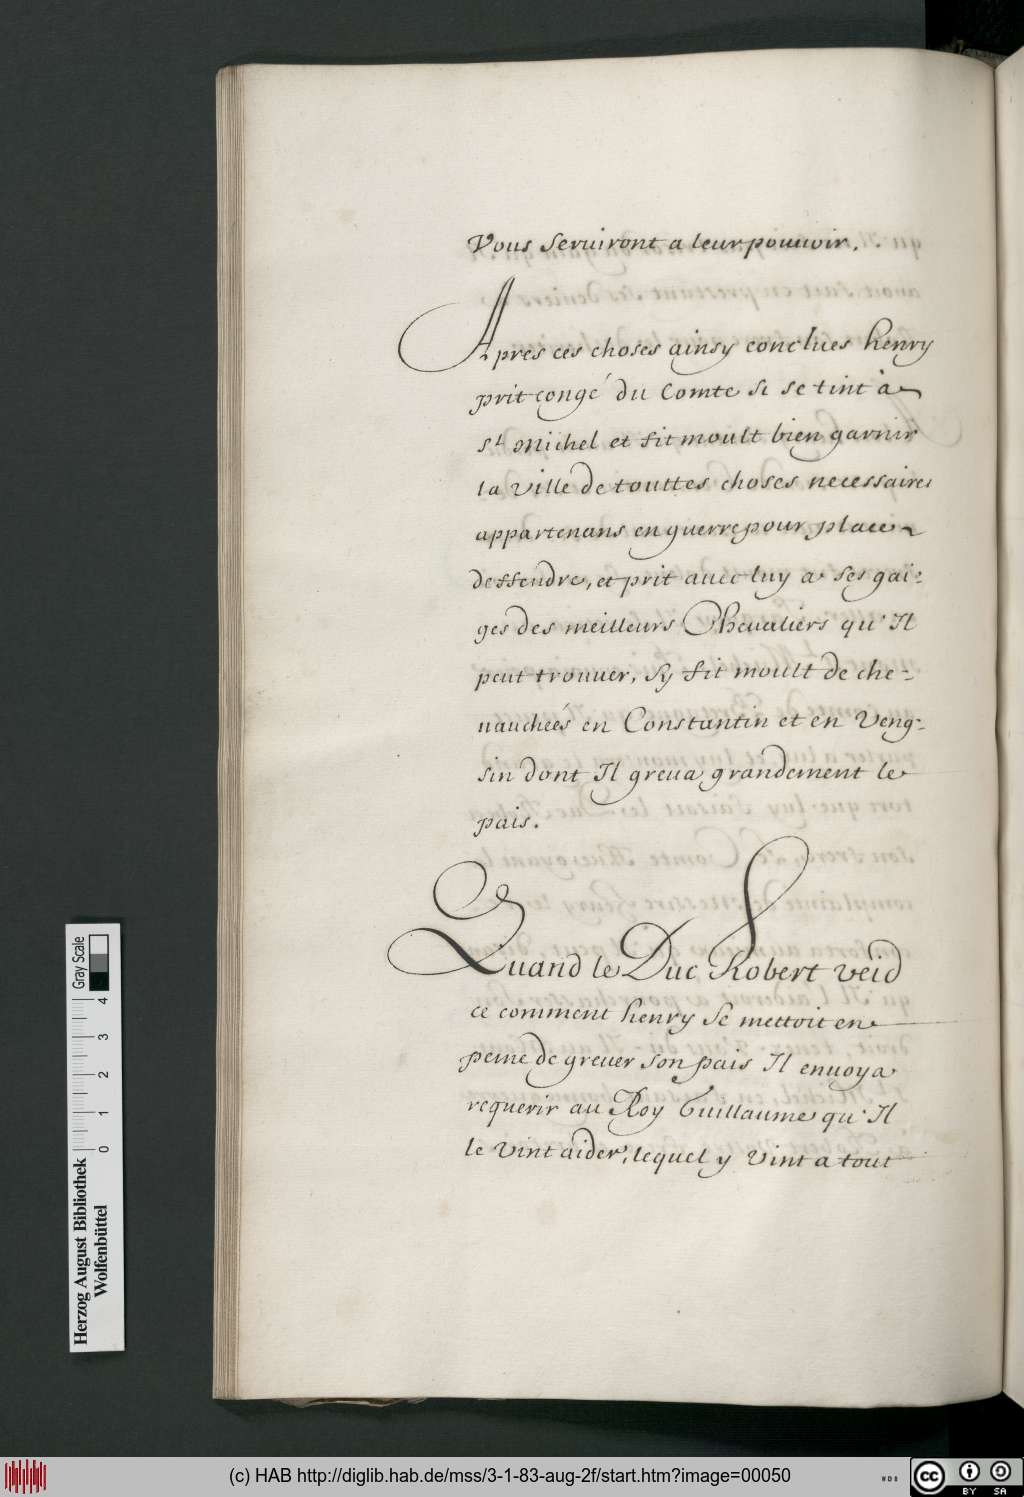 Vous seruiront a leur pouuoir.
Apres ces choses ainsy conclues henry
prit congé du Comte si se tint à
St. Michel et fit moult bien garnir
la Ville de touttes choses necessaires
appartenans en guerre pour place
deffendre, et prit auec luy a ses gai-
ges des meilleurs Chevaliers qu'Il
peut trouuer, sy fit moult de che-
uauchées en Constantin et en Veng-
sin dont Il greua grandement le
pais.
Quand le Duc Robert veid
ce comment henry se mettoit en
peine de greuer son pais Il enuoya
requerir au Roy Guillaume qu'Il
le vint aider, lequel y vint a tout
Gray Scale
0 1 2 3 4
Herzog August Bibliothek
Wolfenbüttel
(c) HAB http://diglib.hab.de/mss/3-1-83-aug-2f/start.htm?image=00050
WDB
cc BY SA